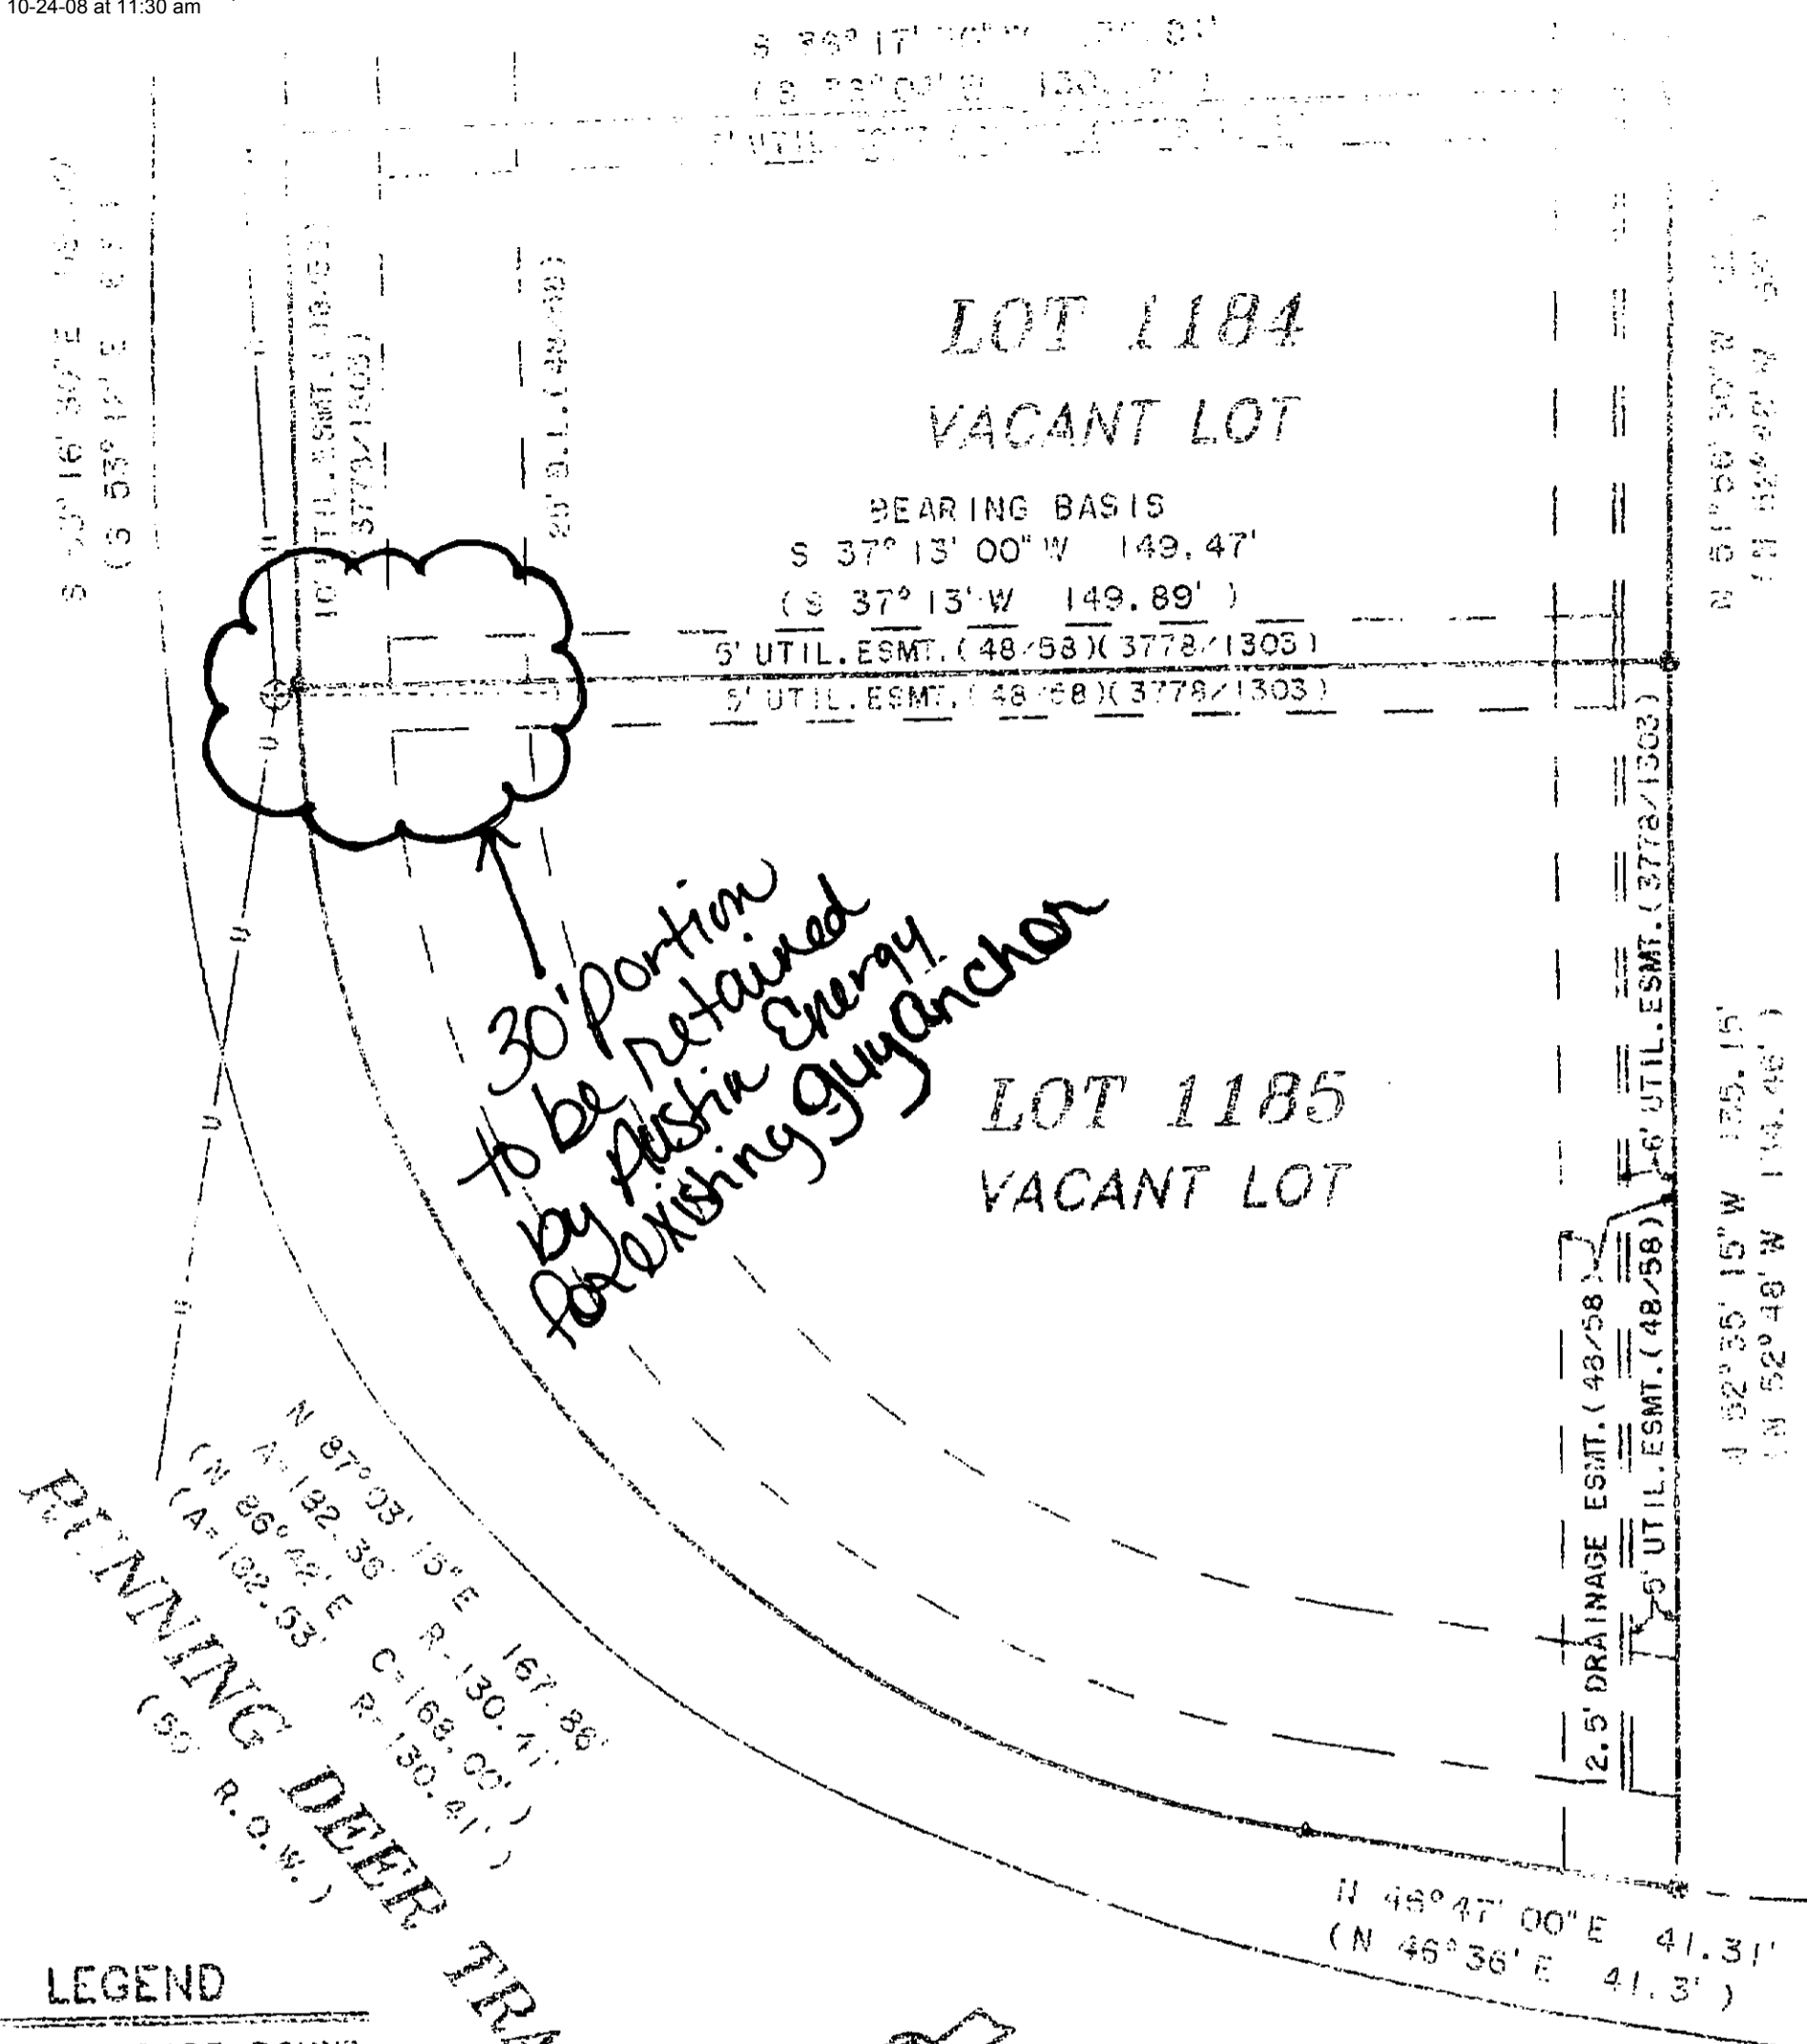 10-24-08 at 11:30 am
LOT 1184
VACANT LOT
BEARING BASIS
S 37° 13' 00" W 149.47'
(S 37° 13' W 149.89')
5' UTIL. ESMT. (48/58)(3778/1303)
5' UTIL. ESMT. (48/58)(3778/1303)
10' UTIL. ESMT. (48/58)
(3778/1303)
25' B.L. (48/58)
(S 53° 17' E
30' Portion
to be retained
by Austin Energy
for existing guy anchor
LOT 1185
VACANT LOT
6' UTIL. ESMT. (3778/1303)
5' UTIL. ESMT. (48/58)
12.5' DRAINAGE ESMT. (48/58)
N 52° 35' 15" W 135.15'
(N 52° 48' W 134.46')
N 87° 03' 15" E 167.86'
A=192.36' R=130.41'
(N 86° 42' E C=168.00')
(A=192.53' R=130.41')
RUNNING DEER TRA
(50' R.O.W.)
N 46° 47' 00" E 41.31'
(N 46° 36' E 41.3')
LEGEND